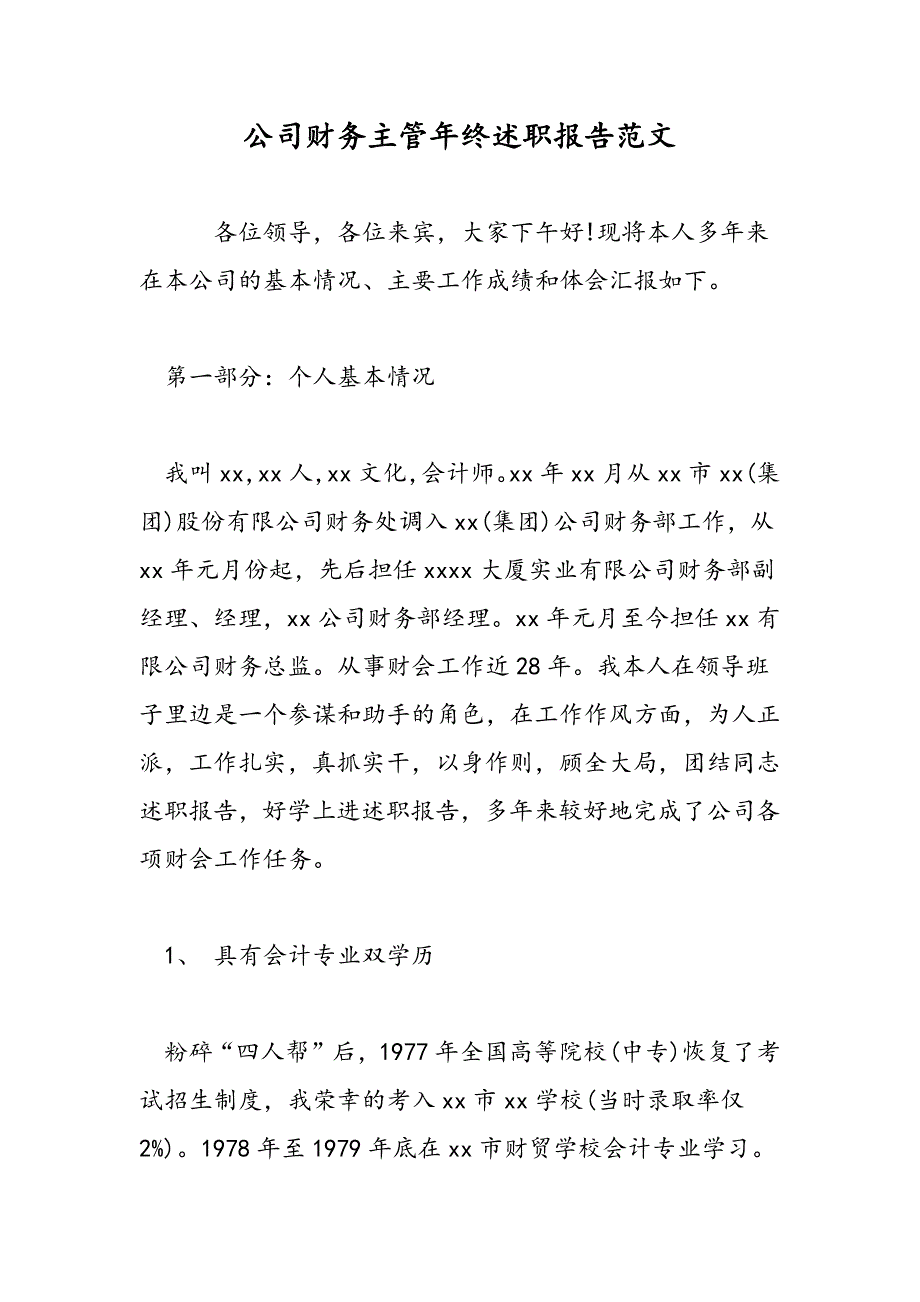 公司财务主管年终述职报告范文
各位领导，各位来宾，大家下午好!现将本人多年来
在本公司的基本情况、主要工作成绩和体会汇报如下。
第一部分：个人基本情况
我叫xx,xx人,xx文化,会计师。xx年xx月从xx市xx(集
团)股份有限公司财务处调入xx(集团)公司财务部工作，从
xx年元月份起，先后担任xxxx大厦实业有限公司财务部副
经理、经理，xx公司财务部经理。xx年元月至今担任xx有
限公司财务总监。从事财会工作近28年。我本人在领导班
子里边是一个参谋和助手的角色，在工作作风方面，为人正
派，工作扎实，真抓实干，以身作则，顾全大局，团结同志
述职报告，好学上进述职报告，多年来较好地完成了公司各
项财会工作任务。
1、 具有会计专业双学历
粉碎“四人帮”后，1977年全国高等院校(中专)恢复了考
试招生制度，我荣幸的考入xx市xx学校(当时录取率仅
2%)。1978年至1979年底在xx市财贸学校会计专业学习。